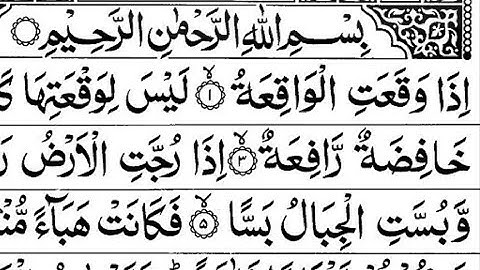 بِسْمِ اللهِ الرَّحْمٰنِ الرَّحِيْمِ
اِذَا وَقَعَتِ الْوَاقِعَةُ ۙ﴿۱﴾ لَيْسَ لِوَقْعَتِهَا
خَافِضَةٌ رَّافِعَةٌ ﴿۳﴾ اِذَا رُجَّتِ الْاَرْضُ
وَّبُسَّتِ الْجِبَالُ بَسًّا ۙ﴿۵﴾ فَكَانَتْ هَبَآءً